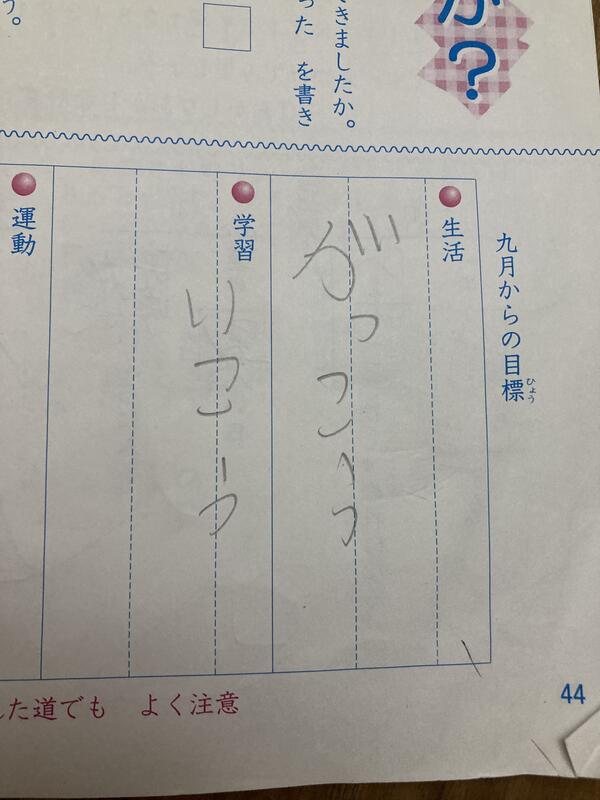 か？
きましたか。
った を書き
う。
九月からの目標
ひょう
生活
がっこう
学習
いこう
運動
れた道でも よく注意
44